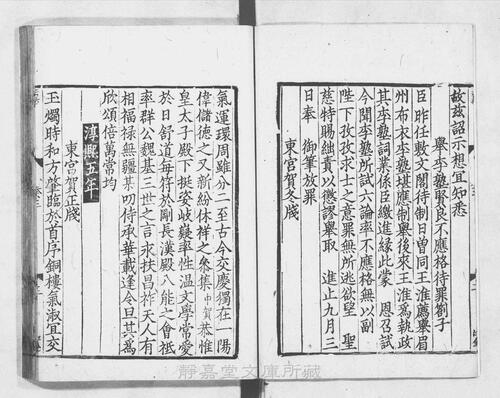 故茲詔示想宜知悉
舉李塾賢良不應格待罪劄子
臣昨任敷文閣待制日曾同王淮薦舉眉
州布衣李塾堪應制舉後來王淮爲執政
其李塾詞業係臣繳進緣此蒙 恩召試
今聞李塾所試六論率不應格無以副
陛下孜孜求士之意罪無所逃欲望 聖
慈特賜絀責以懲謬舉取 進止九月三
日奉 御筆放罪
東宮賀冬牋
氣運環周雖分二至古今交慶獨在一陽
偉儲德之又新紛休祥之叅集中賀恭惟
皇太子殿下挺姿岐嶷率性溫文學常愛
於日舒道每符於剛長漢殿八能之會祇
率群公魏基三世之言求扶昌祚天人有
相福祿無疆某叨侍承華載逢令旦其爲
欣頌倍萬常均
淳熙五年
東宮賀正牋
玉燭時和方肇臨於首序銅樓氣淑宜交
靜嘉堂文庫所藏